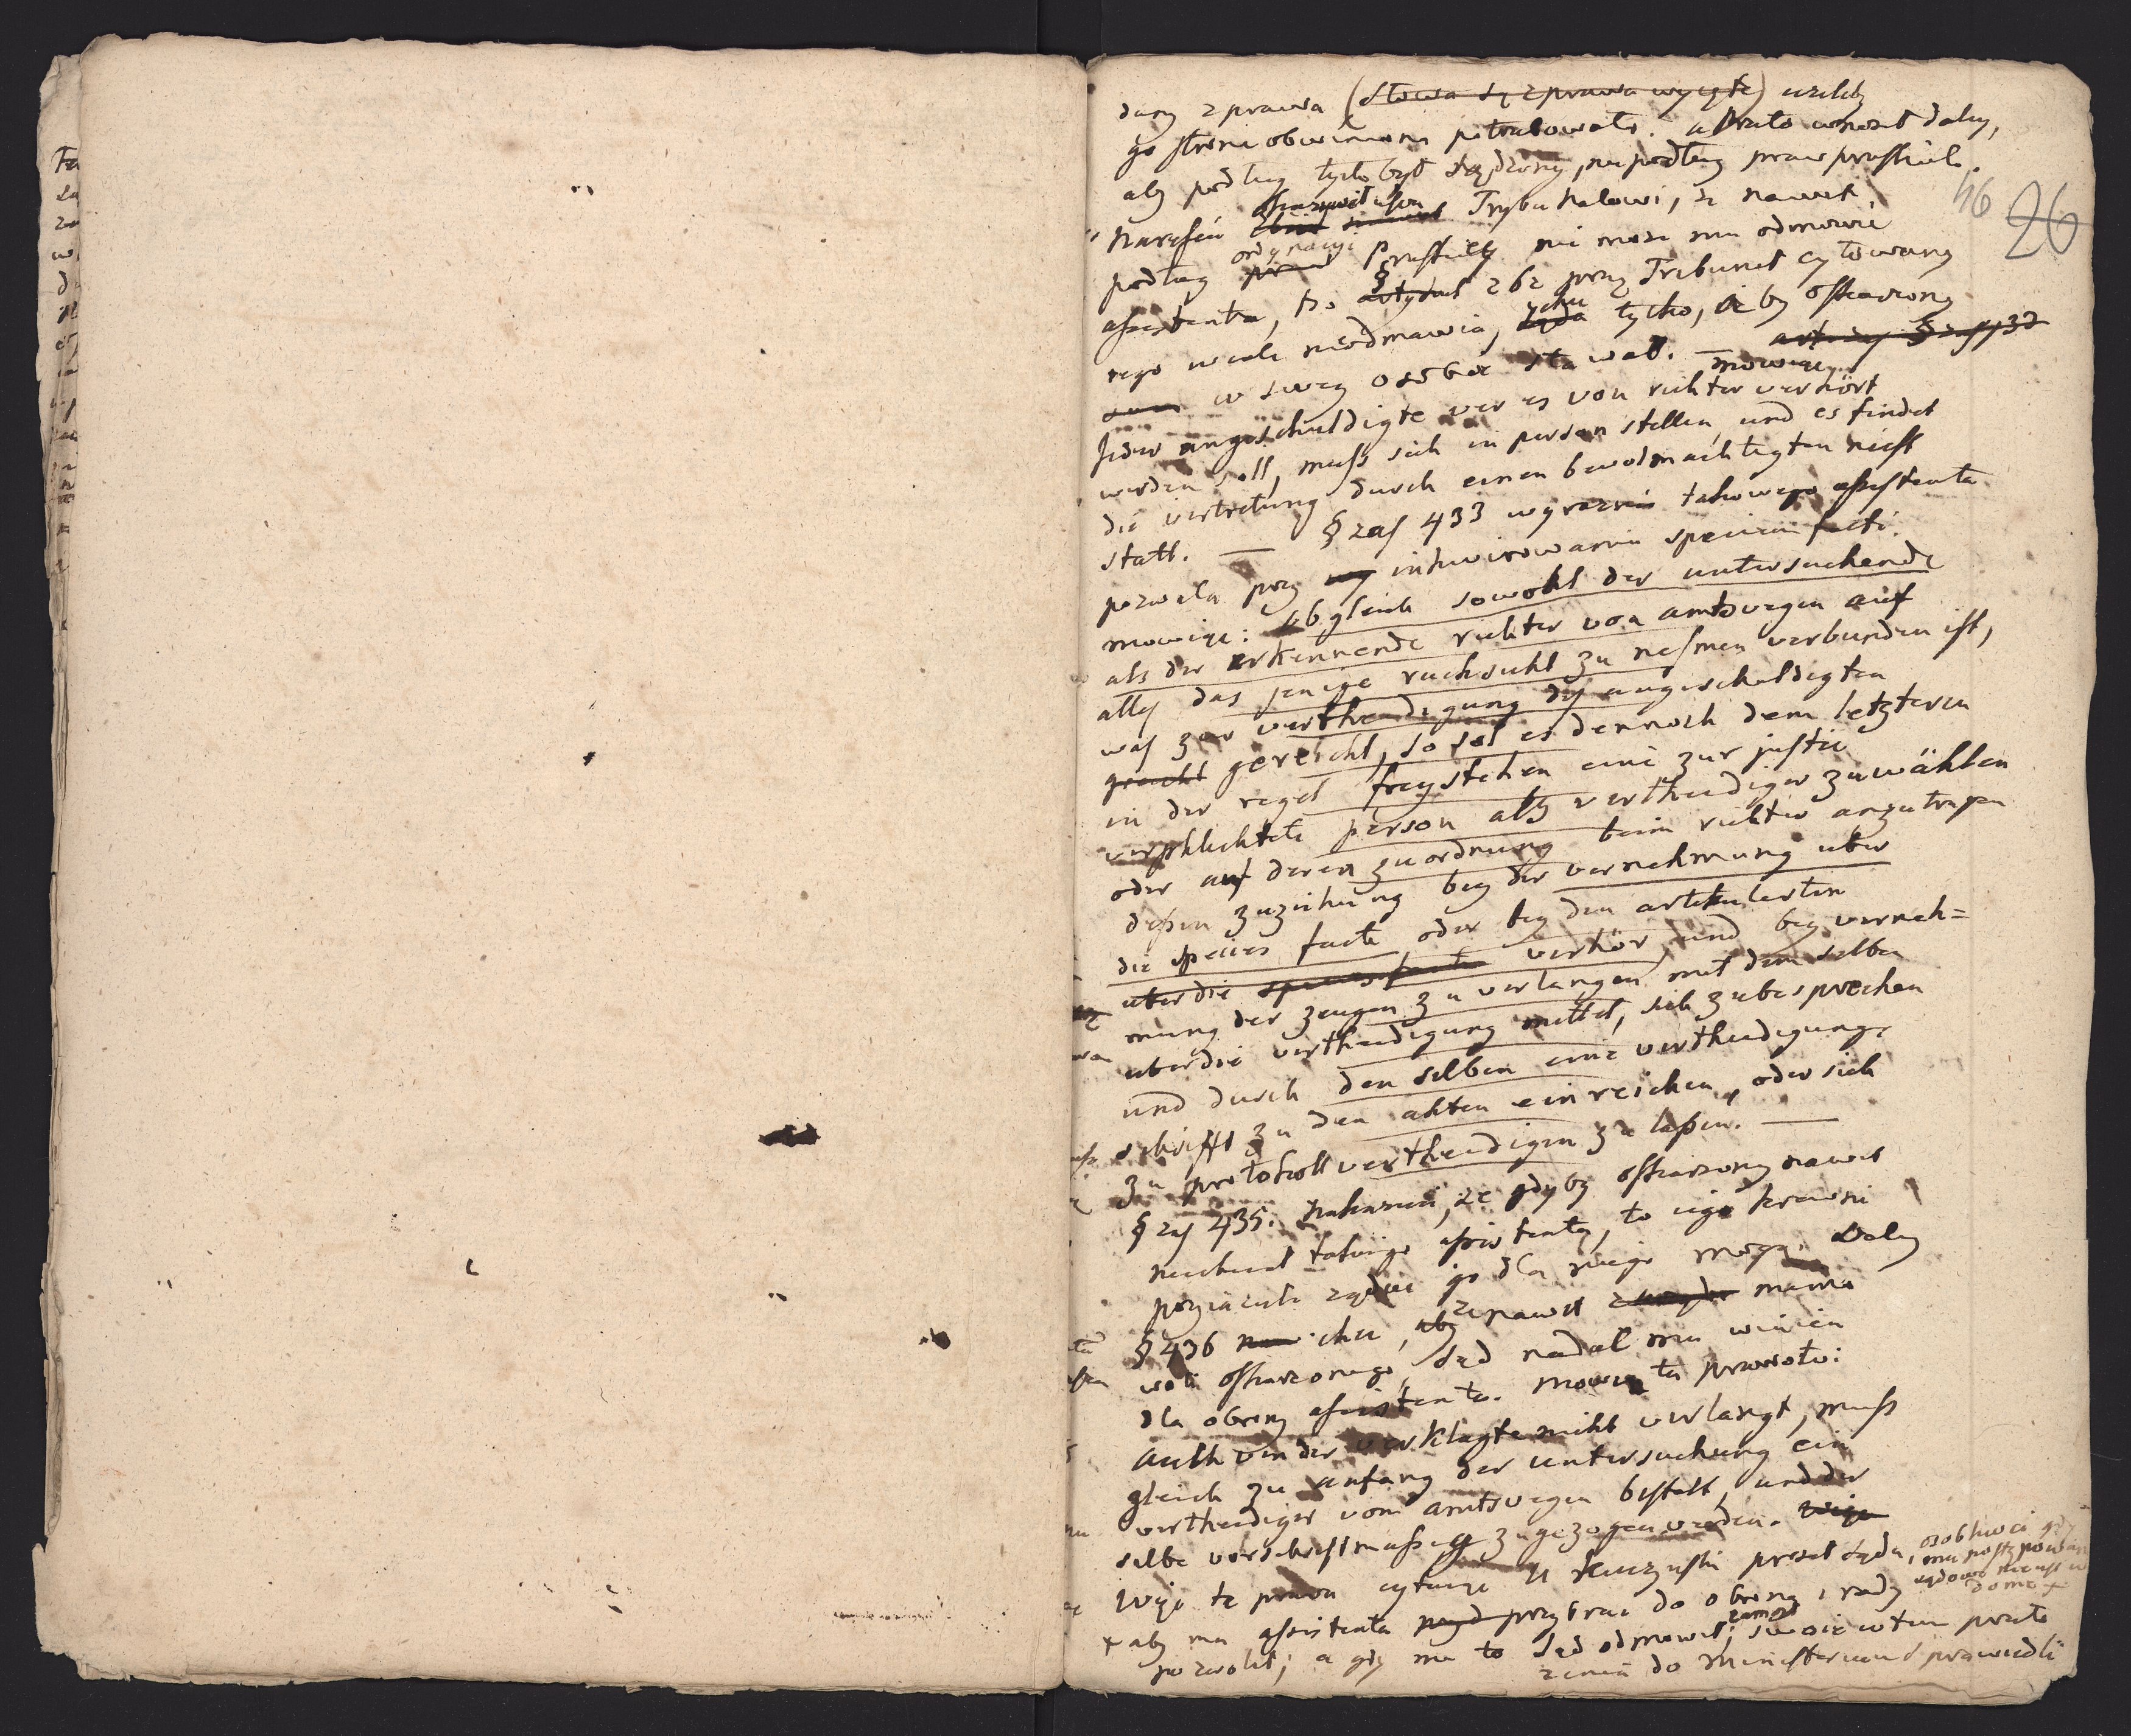 dany z prawa (słowa są z prawa wyięte) wieleby
go strona obwiniona potrzebowała. a Przeto wnosił daley,
aby podług tych był sądzony, nie podług praw pruskich.
46 26
Trybunałowi, że nawet
podług ordynacyi Pruskiey nie może mu odmowić
assistenta, bo § 262 przez Tribunał cytowany
tego wcale nieodmawia, chce tylko, że by oskarzony
w swey osobie stawał. — mowiąc
Jeder angeschuldigte der es von richter verhört
werden soll, muss sich in person stellen, und es findet
die vertretung durch einen bevolmächtigten nicht
statt. — § zaś 433 wyraznie takowego assistenta
pozwala przy indwirowaniu speciem facti.
mowiąc: obgleich sowohl der untersuchende
als der erkennende richter von amtswegen auf
alles das jenige rucksicht zu nehmen verbunden ist,
was zur vertheidigung des angeschuldigten
gereicht, so sol es dennoch dem letzteren
in der regel freystehen eine zur justiz
verpflichtete person als vertheidiger zu wählen
oder auf deren zuordnung beim richter anzutragen
dessen zuziehung bey der vernehmung uber
die species facti, oder bey den artikulirten
uber die species facti verhör, und bey verneh=
mung der zeugen zu verlangen mit dem selben
uber die vertheidigung mittel, sich zu besprechen
und durch den selben eine vertheidigungs
schrifft zu den akten einreichen, oder sich
zu protokoll vertheidigen zu lassen. —
§ zaś 435. nakazuie, że gdyby oskarzony nawet
niechciał takiego assistenta, to iego krewni
przyiaciele żądać go dla niego mogą. Daley
§ 436 chce, że nawet mimo
woli oskarzonego, sąd nadal mu winien
dla obrony assistenta. mowią te prawo:
Auch wen der verklagte nicht verlangt, muss
gleich zu anfang der untersuchung ein
vertheidiger vom amtswegen bestelt, und der
selbe vorschriftmassig zugezogen werden.
Więc te prawa cytuiąc U prosił sądu, osobliwei gdy
mu postępowan
sądowe
x aby mu assistenta przybrać do obrony i rady
pozwolił; a gdy mu to sąd odmowił, swoie w tem
do Ministerium sprawiedli